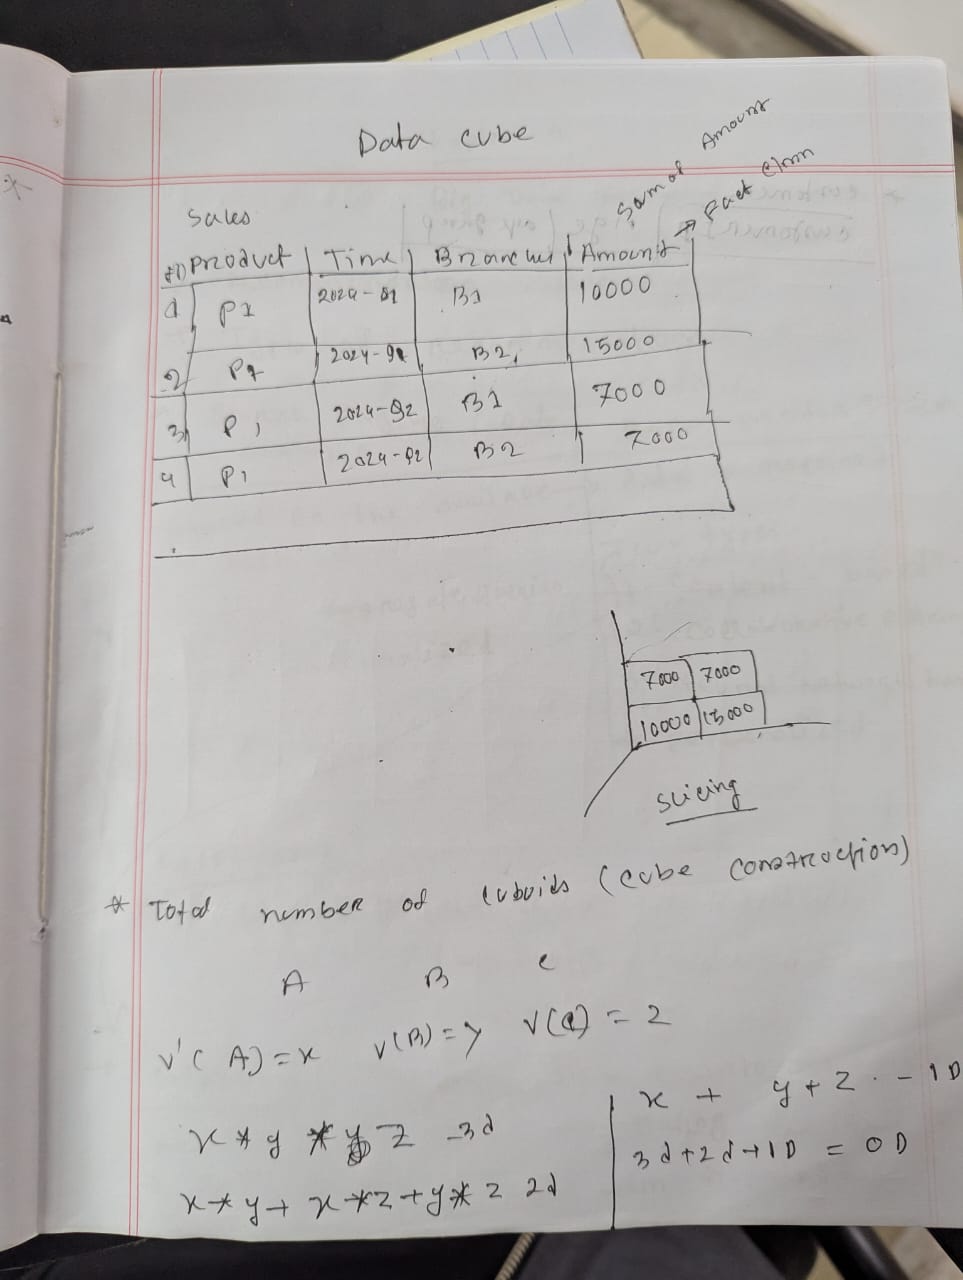 Data cube
Sum of Amount
→ Fact clmn
Sales
ID Product Time Branches Amount
1 P1 2024-Q1 B1 10000
2 P1 2024-Q1 B2 15000
3 P1 2024-Q2 B1 7000
4 P1 2024-Q2 B2 7000
7000 7000
10000 15000
slicing
* Total number of cuboids (cube construction)
A B C
v'(A)=x v(B)=y v(C)=2
x*y*z -3d
x*y+x*z+y*z 2d
x + y+z -1D
3d+2d+1D = 0D